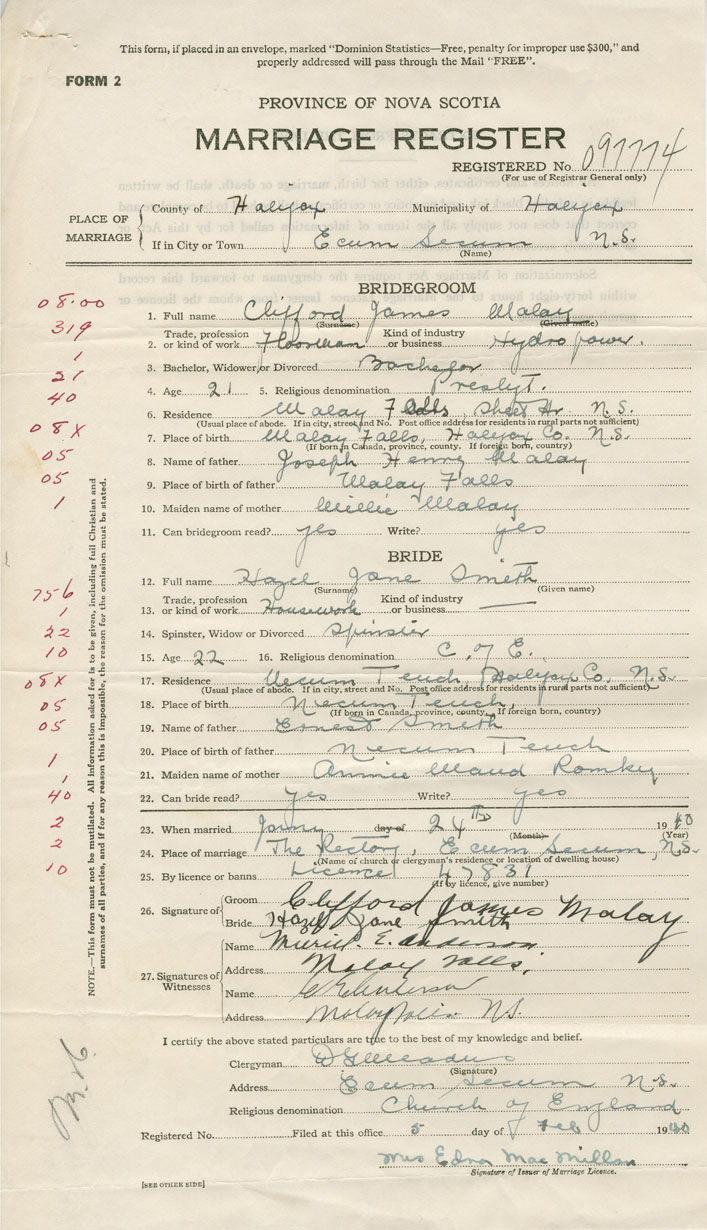 This form, if placed in an envelope, marked "Dominion Statistics—Free, penalty for improper use $300," and
properly addressed will pass through the Mail "FREE".
FORM 2
PROVINCE OF NOVA SCOTIA
MARRIAGE REGISTER
REGISTERED No 097774
(For use of Registrar General only)
PLACE OF MARRIAGE
County of Halifax Municipality of Halifax
If in City or Town Ecum Secum N.S.
(Name)
BRIDEGROOM
08.00
1. Full name Clifford James Malay
(Surname) (Given name)
319
Trade, profession Kind of industry
2. or kind of work Floorman or business Hydro power.
1
3. Bachelor, Widower, or Divorced Bachelor
21
4. Age 21 5. Religious denomination Presbyt.
40
6. Residence Malay Falls, Sheet Hr N.S.
(Usual place of abode. If in city, street and No. Post office address for residents in rural parts not sufficient)
08X
7. Place of birth Malay Falls, Halifax Co. N.S.
(If born in Canada, province, county. If foreign born, country)
05
8. Name of father Joseph Henry Malay
05
9. Place of birth of father Malay Falls
1
10. Maiden name of mother Millie Malay
11. Can bridegroom read? yes Write? yes
BRIDE
12. Full name Hazel Jane Smith
(Surname) (Given name)
756
Trade, profession Kind of industry
1
13. or kind of work Housework or business —
22
14. Spinster, Widow or Divorced Spinster
10
15. Age 22 16. Religious denomination C. of E.
08X
17. Residence Necum Teuch, Halifax Co. N.S.
(Usual place of abode. If in city, street and No. Post office address for residents in rural parts not sufficient)
05
18. Place of birth Necum Teuch,
(If born in Canada, province, county. If foreign born, country)
05
19. Name of father Ernest Smith
20. Place of birth of father Necum Teuch
1
21. Maiden name of mother Annie Maud Romky
1
40
22. Can bride read? yes Write? yes
2
23. When married day of 24th 1940
(Month) (Year)
2
24. Place of marriage The Rectory, Ecum Secum, N.S.
(Name of church or clergyman's residence or location of dwelling house)
10
25. By licence or banns Licence 47831
(If by licence, give number)
26. Signature of
Groom Clifford James Malay
Bride Hazel Jane Smith
27. Signatures of Witnesses
Name Muriel E. Anderson
Address Malay Falls,
Name
Address Malay Falls N.S.
NOTE.—This form must not be mutilated. All information asked for is to be given, including full Christian and
surnames of all parties, and if for any reason this is impossible, the reason for the omission must be stated.
I certify the above stated particulars are true to the best of my knowledge and belief.
Clergyman
(Signature)
Address Ecum Secum N.S.
Religious denomination Church of England
Registered No. Filed at this office 5 day of Feb 1940
Mrs Edna MacMillan
Signature of Issuer of Marriage Licence.
[SEE OTHER SIDE]